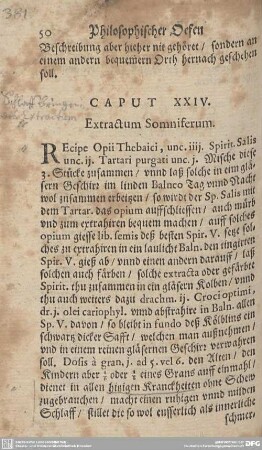 50 Philosophischer Oefen
Beschreibung aber hieher nie gehöret / sondern an
einem andern bequemern Orth hernach geschehen
soll.
CAPUT XXIV.
Extractum Somniferum.
Recipe Opii Thebaici, unc. iiij. Spirit. Salis
unc. ij. Tartari purgati unc. j. Mische diese
3. Stücke zusammen / vnnd laß solche in ein gläs-
sern Geschirr im linden Balneo Tag vnnd Nacht
wol zusammen erbeigen / so wirdt der Sp. Salis mit
dem Tartar. das opium auffschliessen / auch mürb
vnd zum extrahiren bequem machen / auff solches
opium giesse lib. semis deß besten Spir. V. setze sol-
ches zu extrahiren in ein laulich Baln. den tingirten
Spir. V. gieß ab / vnnd einen andern darauff / laß
solchen auch färben / solche extracta oder gefärbte
Spirit. thu zusammen in ein gläsern Kolben / vnnd
thu auch weiters dazu drachm. ij. Croci optimi,
dr. j. olei cariophyl. vnnd abstrahire in Baln. allen
Sp. V. davon / so bleibt in fundo deß Kölblins ein
schwartz dicker Safft / welchen man außnehmen /
vnd in einem reinen gläsernen Geschirr verwahren
soll. Dosis à gran. j. ad 5. vel 6. den Alten / den
Kindern aber oder eines Grans auff einmahl /
dienet in allen hitzigen Kranckheiten ohne Schew
zugebrauchen / macht einen ruhigen vnnd milden
Schlaff / stillet die so wol eusserlich als innerliche
schmer-